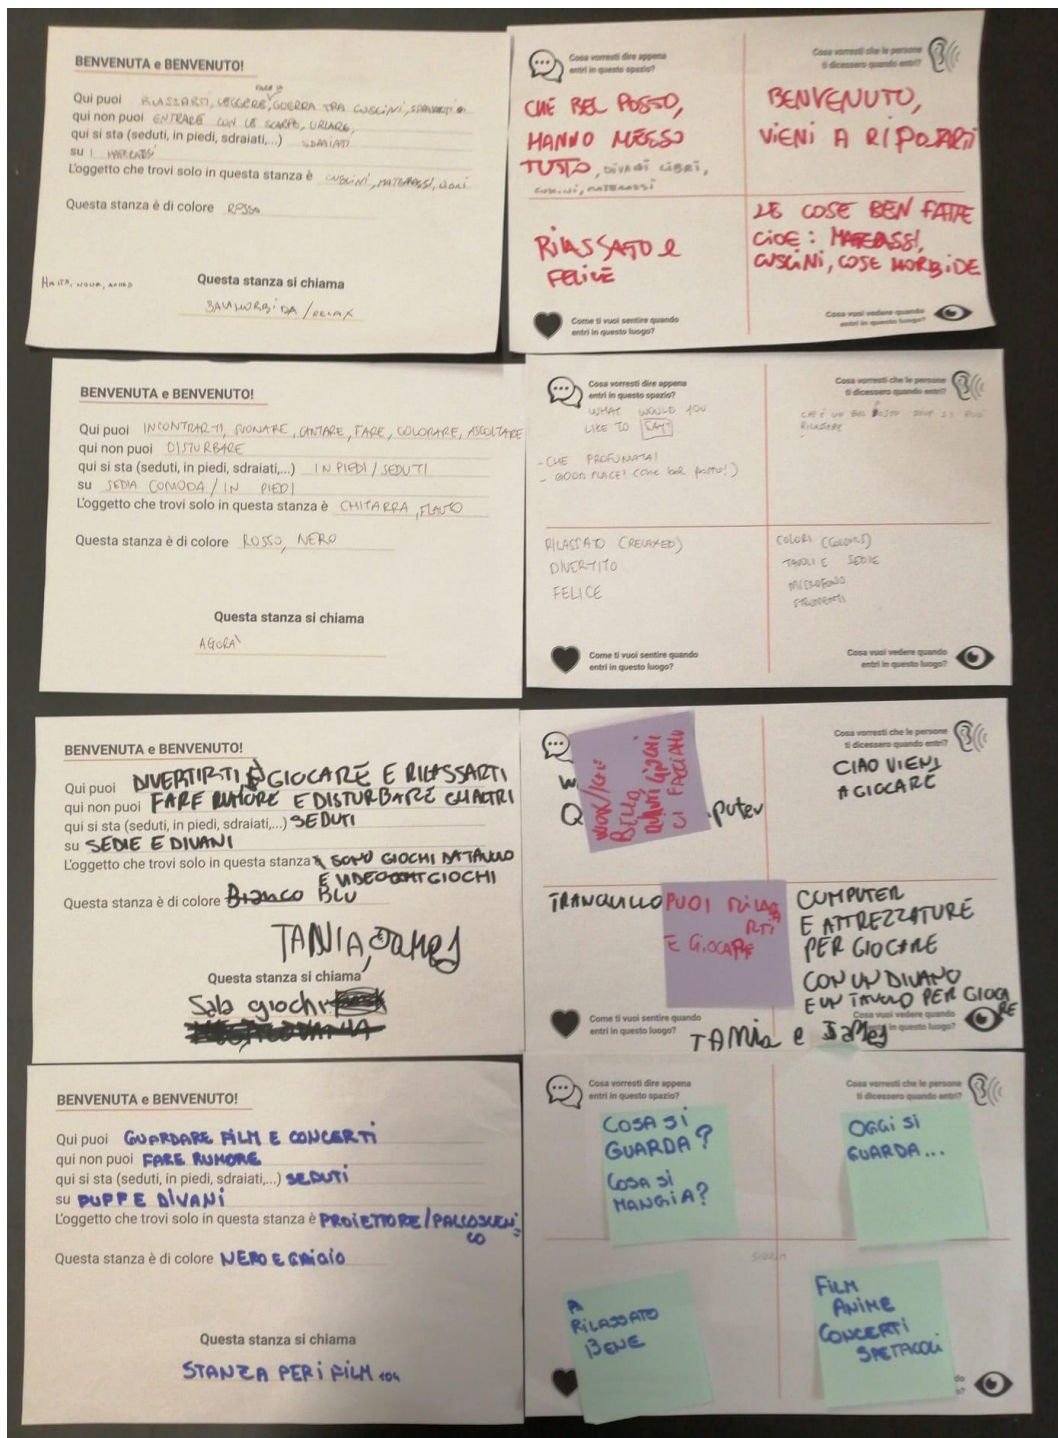 BENVENUTA e BENVENUTO!
Qui puoi RILASSARTI, LEGGERE, FARE GUERRA TRA CUSCINI,
qui non puoi ENTRARE CON LE SCARPE, URLARE,
qui si sta (seduti, in piedi, sdraiati,...) SDRAIATI
su I MATERASSI
L'oggetto che trovi solo in questa stanza è CUSCINI, MATERASSI,
Questa stanza è di colore ROSSO
Questa stanza si chiama
SALA MORBIDA / RELAX
Cosa vorresti dire appena
entri in questo spazio?
CHE BEL POSTO,
HANNO MESSO
TUSTO, DIVANI LIBRI,
CUSCINI, MATERASSI
Cosa vorresti che le persone
ti dicessero quando entri?
BENVENUTO,
VIENI A RIPOZARTI
RILASSATO e
FELICE
Come ti vuoi sentire quando
entri in questo luogo?
LE COSE BEN FATTE
CIOE: MATERASSI,
CUSCINI, COSE MORBIDE
Cosa vuoi vedere quando
entri in questo luogo?
BENVENUTA e BENVENUTO!
Qui puoi INCONTRARTI, SUONARE, CANTARE, FARE, COLORARE, ASCOLTARE
qui non puoi DISTURBARE
qui si sta (seduti, in piedi, sdraiati,...) IN PIEDI / SEDUTI
su SEDIA COMODA / IN PIEDI
L'oggetto che trovi solo in questa stanza è CHITARRA, FLAUTO
Questa stanza è di colore ROSSO, NERO
Questa stanza si chiama
AGORA'
Cosa vorresti dire appena
entri in questo spazio?
WHAT WOULD YOU
LIKE TO SAY?
- CHE PROFUMATA!
- GOOD PLACE! (CHE BEL POSTO!)
Cosa vorresti che le persone
ti dicessero quando entri?
CHE È UN BEL POSTO DOVE SI PUÒ
RILASSARE
RILASSATO (RELAXED)
DIVERTITO
FELICE
Come ti vuoi sentire quando
entri in questo luogo?
COLORI (COLORS)
TAVOLI E SEDIE
MICROFONO
STRUMENTI
Cosa vuoi vedere quando
entri in questo luogo?
BENVENUTA e BENVENUTO!
Qui puoi DIVERTIRTI GIOCARE E RILASSARTI
qui non puoi FARE RUMORE E DISTURBARE GLI ALTRI
qui si sta (seduti, in piedi, sdraiati,...) SEDUTI
su SEDIE E DIVANI
L'oggetto che trovi solo in questa stanza SONO GIOCHI DA TAVOLO
E VIDEO GIOCHI
Questa stanza è di colore Bianco BLU
TANIA, James
Questa stanza si chiama
Sala giochi
W
Q puter
BELLO
QUANTI GIOCHI
CI FACCIAMO
Cosa vorresti che le persone
ti dicessero quando entri?
CIAO VIENI
A GIOCARE
TRANQUILLO
PUOI RILASSARTI
E GIOCARE
Come ti vuoi sentire quando
entri in questo luogo?
COMPUTER
E ATTREZZATURE
PER GIOCARE
CON UN DIVANO
E UN TAVOLO PER GIOCARE
Cosa vuoi vedere quando
in questo luogo?
TANIA e James
BENVENUTA e BENVENUTO!
Qui puoi GUARDARE FILM E CONCERTI
qui non puoi FARE RUMORE
qui si sta (seduti, in piedi, sdraiati,...) SEDUTI
su PUFF E DIVANI
L'oggetto che trovi solo in questa stanza è PROIETTORE/PALCOSCENICO
Questa stanza è di colore NERO E GRIGIO
Questa stanza si chiama
STANZA PER I FILM 104
Cosa vorresti dire appena
entri in questo spazio?
COSA SI
GUARDA?
COSA SI
MANGIA?
Cosa vorresti che le persone
ti dicessero quando entri?
OGGI SI
GUARDA...
RILASSATO
BENE
FILM
ANIME
CONCERTI
SPETACOLI